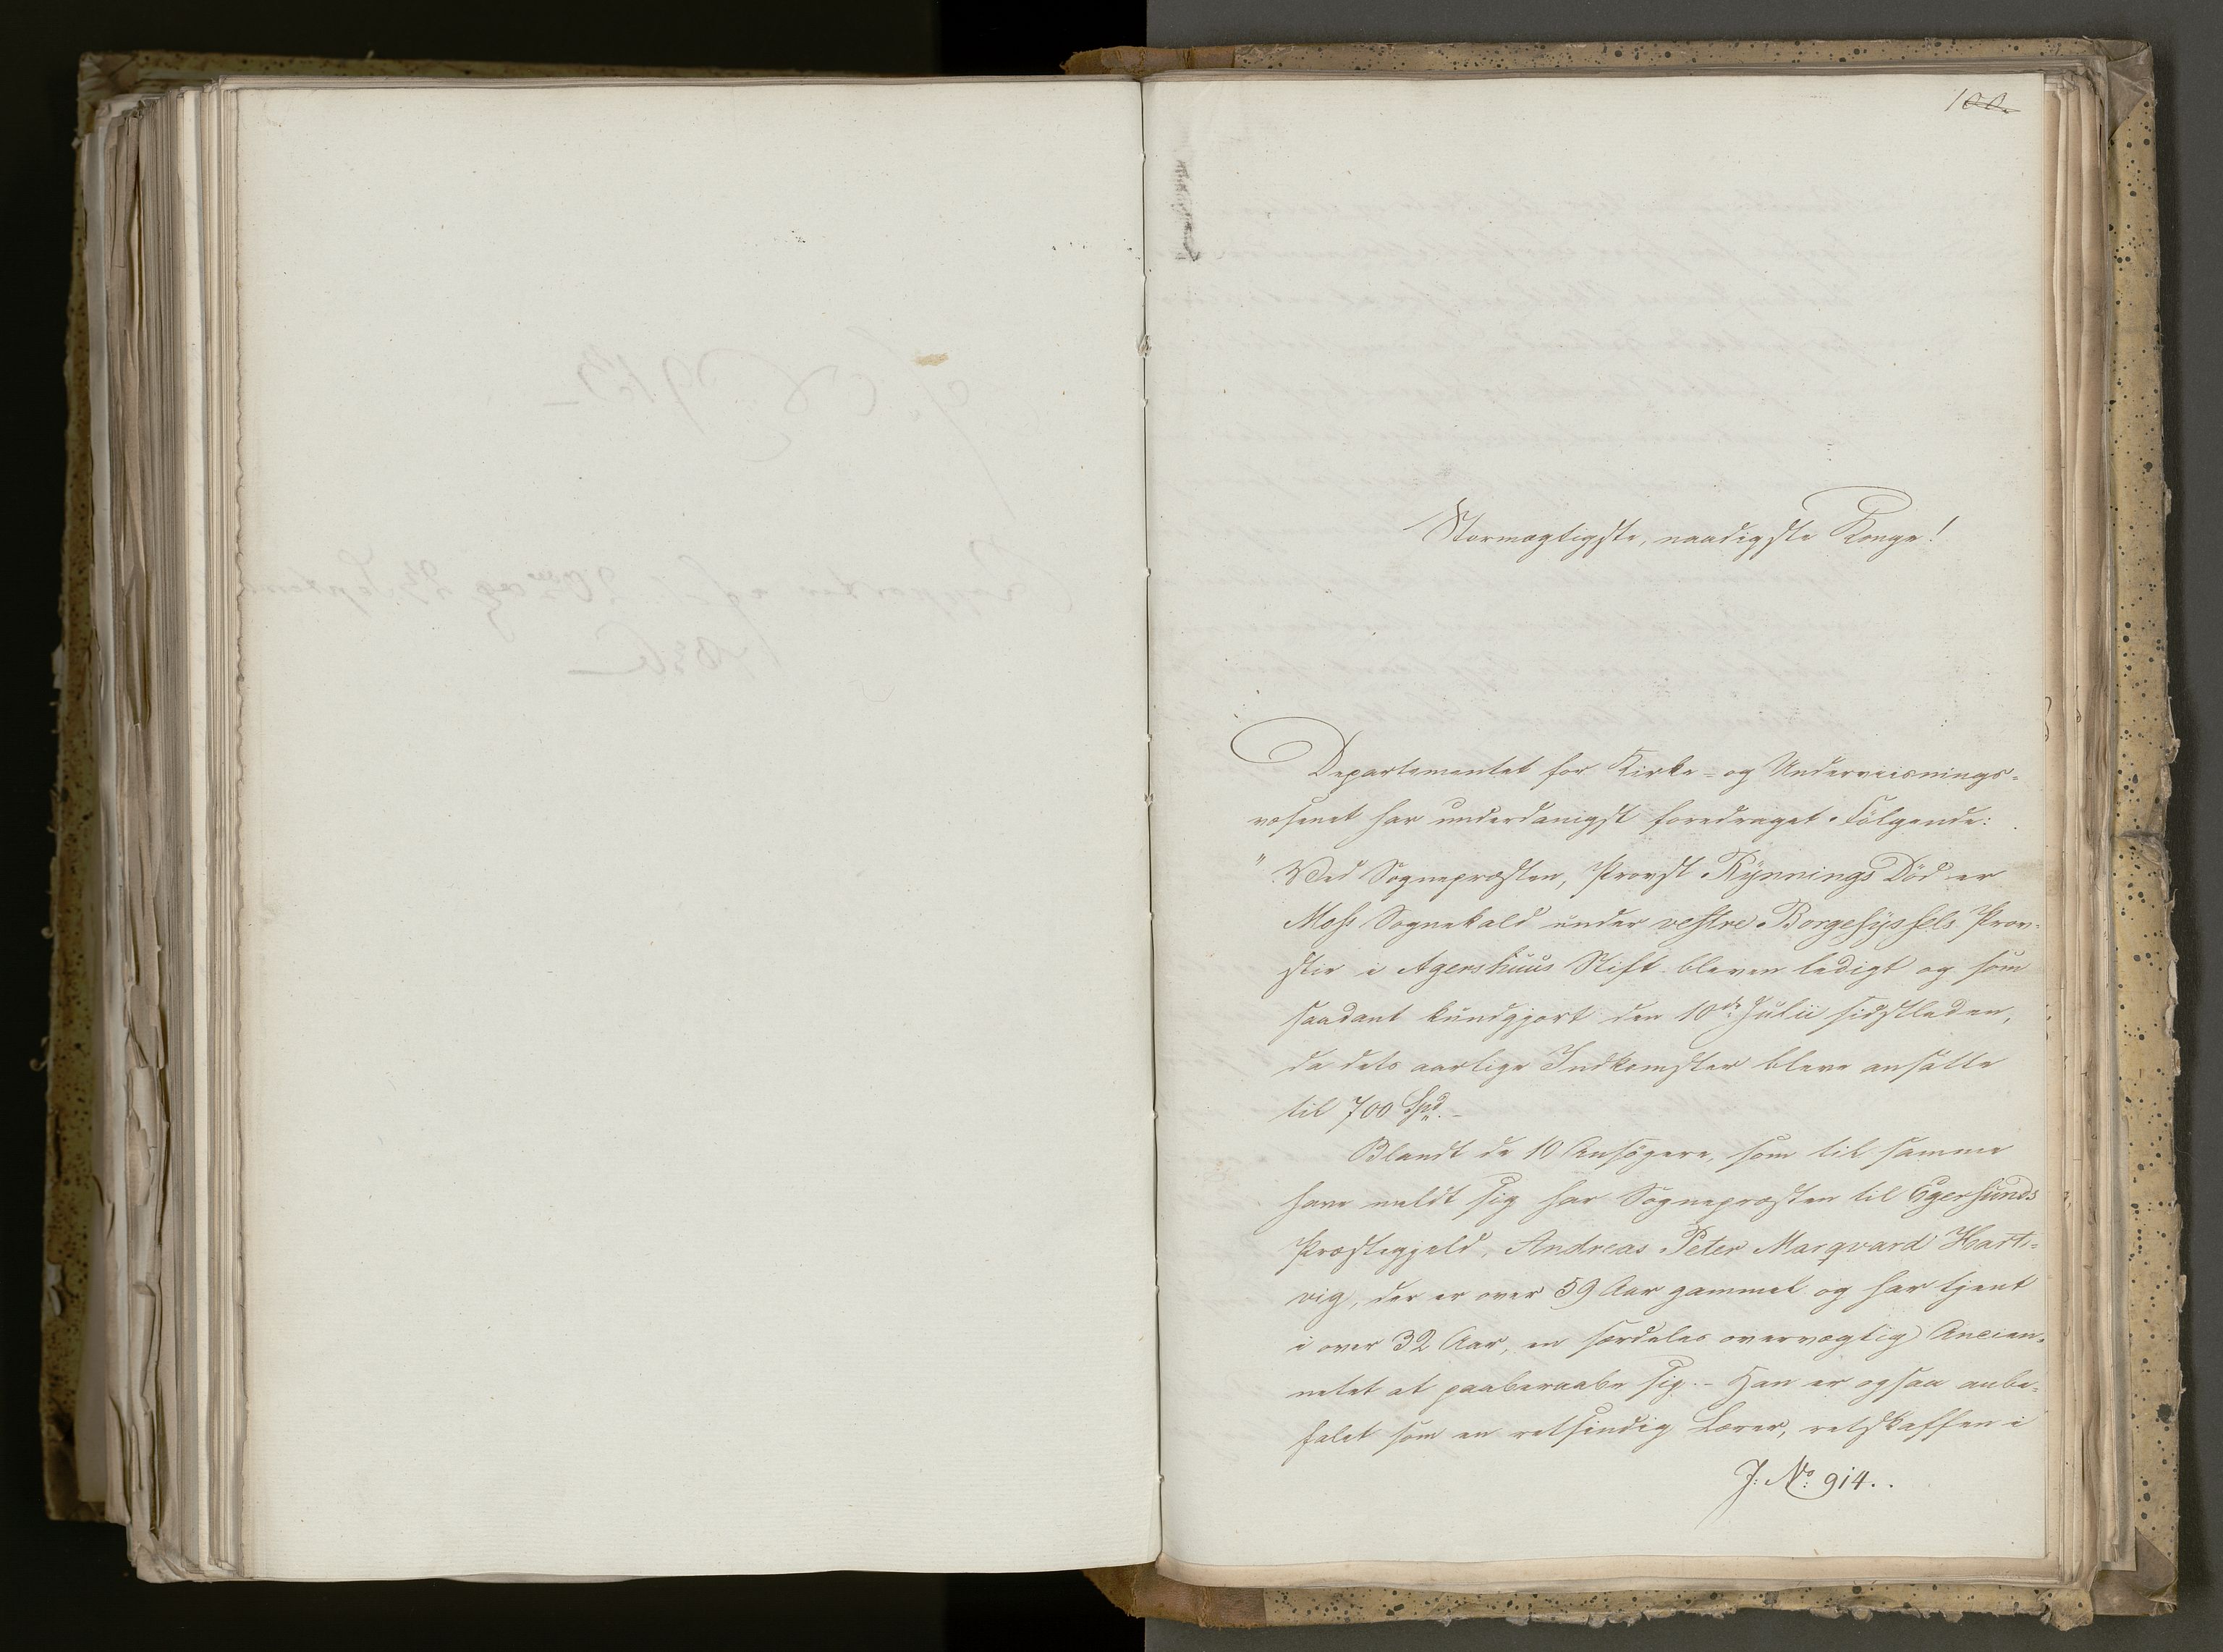 100.
Stormægtigste, naadigste Konge!
Departementet for Kirke- og Underviisnings-
væsenet har underdanigst foredraget Følgende:
"Ved Sognepræsten, Provst Rynnings Død er
Moss Sognekald under vestre Borgesyssels Prov-
stie i Agershuus Stift bleven ledigt og som
saadant kundgjort den 10de Julii sidstleden,
da dets aarlige Indkomster bleve ansatte
til 700 Spd. -
Blandt de 10 Ansøgere, som til samme
have meldt sig har Sognepræsten til Egersunds
Præstegjeld, Andreas Peter Marqvard Hart-
vig, der er over 59 Aar gammel og har tjent
i over 32 Aar, en særdeles overvægtig Ancien-
netet at paaberaabe sig. - Han er ogsaa anbe-
falet som en retsindig Lærer, retskaffen i
J: No: 914..